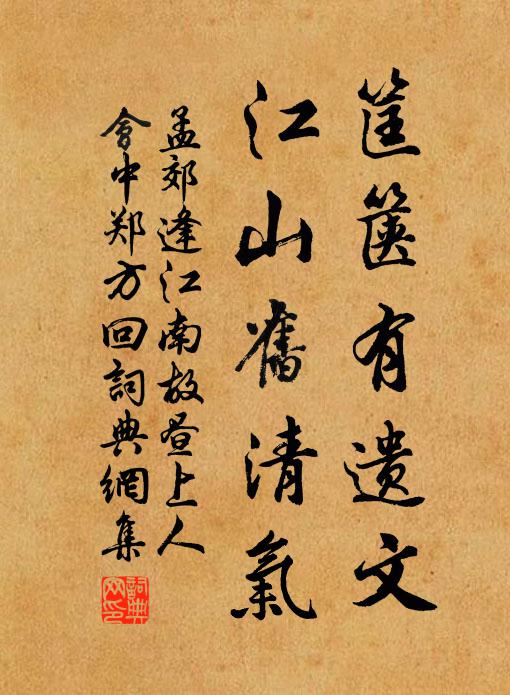 筐篋有遗文
江山舊清氣
孟郊逢江南故晝上人
會中郑方回詞典網集
詞典網印